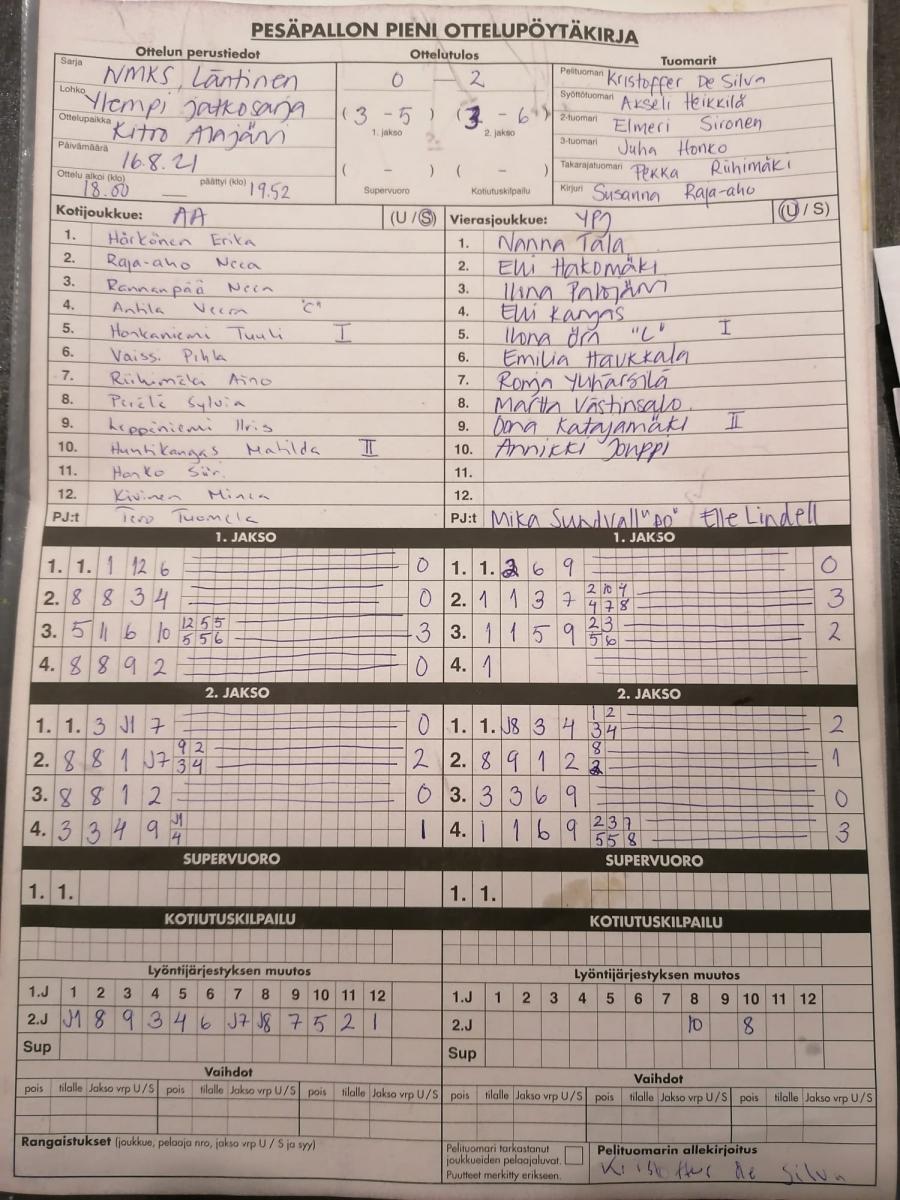 PESÄPALLON PIENI OTTELUPÖYTÄKIRJA
Ottelun perustiedot
Sarja NMKS, Läntinen
Lohko Ylempi jatkosarja
Ottelupaikka Kitro Alajärvi
Päivämäärä 16.8.21
Ottelu alkoi (klo) 18.00 — päättyi (klo) 19.52
Ottelutulos
0 — 2
(3 - 5) (3 - 6)
1. jakso 2. jakso
( - ) ( - )
Supervuoro Kotiutuskilpailu
Tuomarit
Pelituomari Kristoffer De Silva
Syöttötuomari Akseli Heikkilä
2-tuomari Elmeri Sironen
3-tuomari Juha Honko
Takarajatuomari Pekka Riihimäki
Kirjuri Susanna Raja-aho
Kotijoukkue: AA (U / S)
1. Härkönen Erika
2. Raja-aho Neea
3. Rannanpää Neea
4. Antila Veera "C"
5. Honkaniemi Tuuli I
6. Vaissi Pihla
7. Riihimäki Aino
8. Perälä Sylvia
9. Leppiniemi Iiris
10. Huhtikangas Matilda II
11. Honko Siiri
12. Kivinen Minea
PJ:t Tero Tuomela
Vierasjoukkue: YPJ (U / S)
1. Nanna Tala
2. Elli Hakomäki
3. Iina Palojärvi
4. Elli Kangas
5. Ilona Örn "C" I
6. Emilia Haukkala
7. Ronja Ylihärsilä
8. Martta Västinsalo
9. Oona Katajamäki II
10. Annikki Jouppi
11.
12.
PJ:t Mika Sundvall "PO" Elle Lindell
1. JAKSO
1. 1. 1 12 6 0
2. 8 8 3 4 0
3. 5 11 6 10 12 5 5 3
5 5 6
4. 8 8 9 2 0
1. JAKSO
1. 1. 2 6 9 0
2. 1 1 3 7 2 10 4 3
4 7 8
3. 1 1 5 9 2 3 2
5 6
4. 1
2. JAKSO
1. 1. 3 J1 7 0
2. 8 8 1 J7 9 2 2
3 4
3. 8 8 1 2 0
4. 3 3 4 9 J1 1
4
2. JAKSO
1. 1. J8 3 4 1 2 2
3 4
2. 8 9 1 2 8 1
2
3. 3 3 6 9 0
4. 1 1 6 9 2 3 7 3
5 5 8
SUPERVUORO
1. 1.
SUPERVUORO
1. 1.
KOTIUTUSKILPAILU
KOTIUTUSKILPAILU
Lyöntijärjestyksen muutos
1.J 1 2 3 4 5 6 7 8 9 10 11 12
2.J J1 8 9 3 4 6 J7 J8 7 5 2 1
Sup
Lyöntijärjestyksen muutos
1.J 1 2 3 4 5 6 7 8 9 10 11 12
2.J 10 8
Sup
Vaihdot
pois tilalle Jakso vrp U/S pois tilalle Jakso vrp U/S pois tilalle Jakso vrp U/S
Vaihdot
pois tilalle Jakso vrp U/S pois tilalle Jakso vrp U/S pois tilalle Jakso vrp U/S
Rangaistukset (joukkue, pelaaja nro, jakso vrp U / S ja syy)
Pelituomari tarkastanut
joukkueiden pelaajaluvat.
Puutteet merkitty erikseen.
Pelituomarin allekirjoitus
Kristoffer De Silva